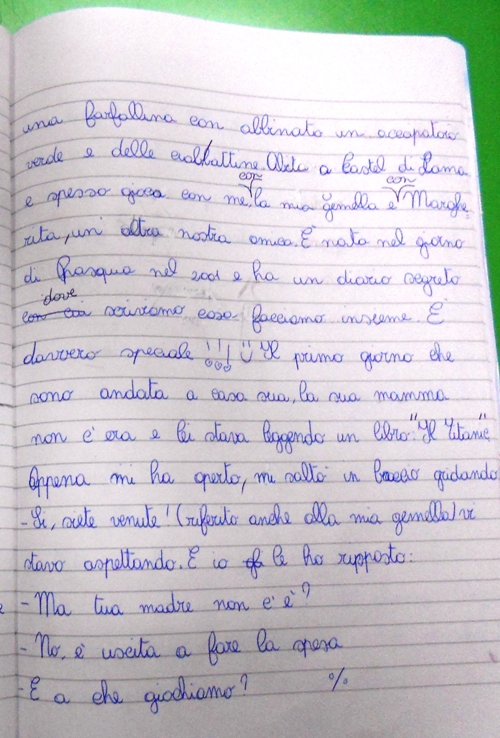 una farfallina con abbinato un accapatoio
verde e delle ciabbattine. Abita a Castel di Lama
e spesso gioca con me, con la mia gemella e con Marghe
rita, un' altra nostra amica. È nata nel giorno
di Pasqua nel 2001 e ha un diario segreto
dove scriviamo cosa facciamo insieme. È
davvero speciale !!! Il primo giorno che
sono andata a casa sua, la sua mamma
non c'era e lei stava leggendo un libro: "Il Titanic"
Appena mi ha aperto, mi saltò in braccio gridando
- Si, siete venute! (riferito anche alla mia gemella) vi
stavo aspettando. E io le ho rupposto:
- Ma tua madre non c'è?
- No, è uscita a fare la spesa
- E a che giochiamo? %